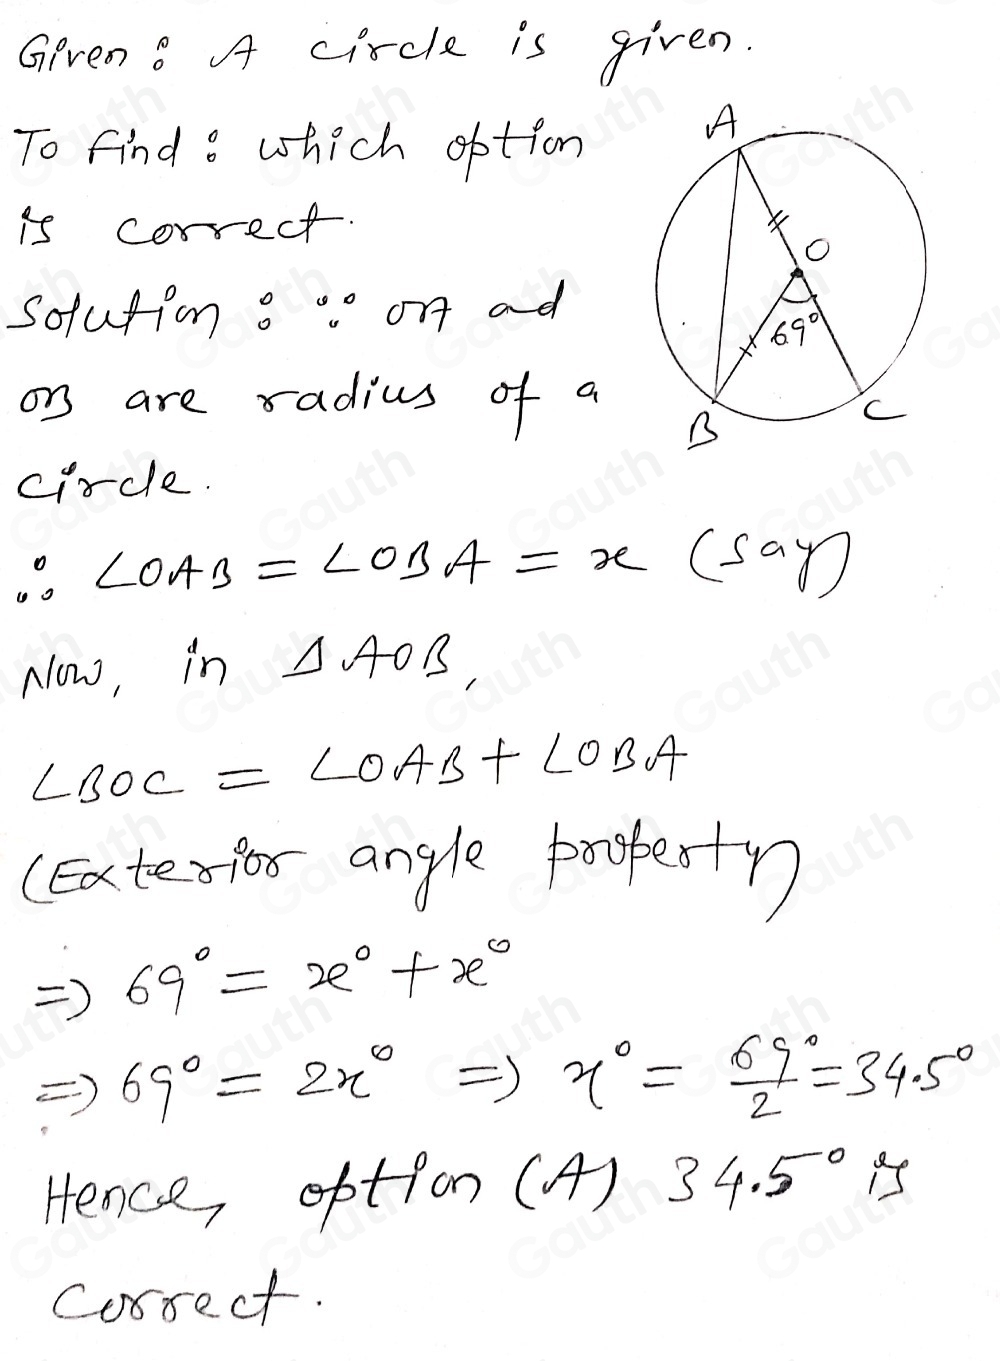 Given : A circle is given.
To find : which option
is correct.
Solution : ∵ OA and
OB are radius of a
circle.
∴ ∠OAB = ∠OBA = x (say)
Now, in ΔAOB,
∠BOC = ∠OAB + ∠OBA
(Exterior angle property)
⇒ 69° = x° + x°
⇒ 69° = 2x° ⇒ x° = 69°/2 = 34.5°
Hence, option (A) 34.5° is
correct.
A
O
69°
B
C
Gauth